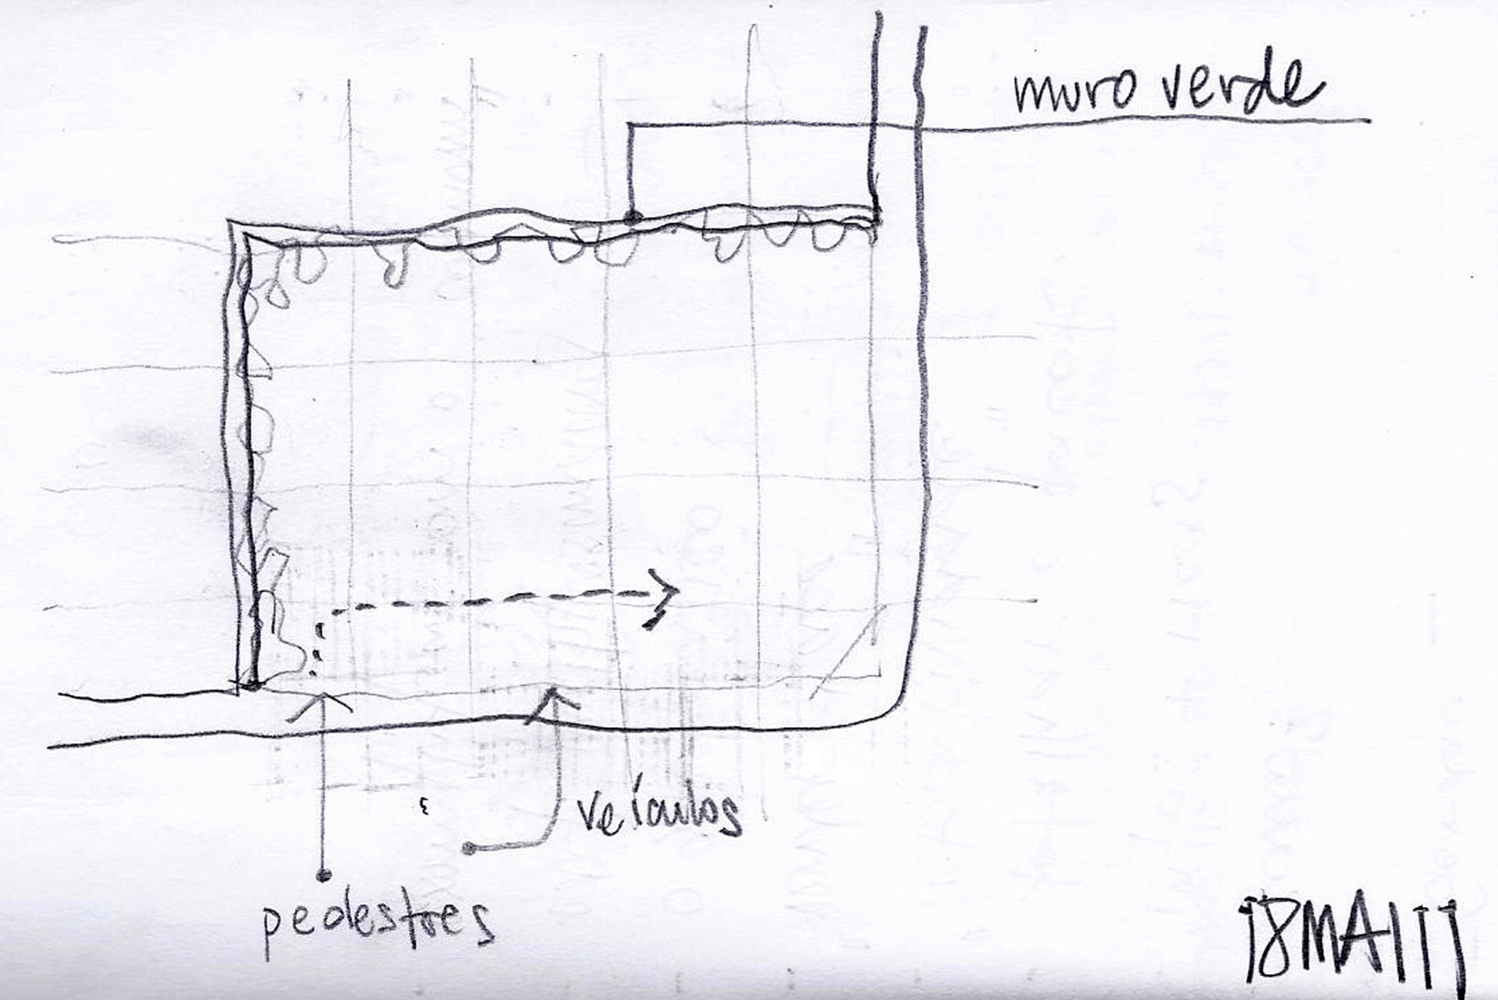 muro verde
veículos
pedestres
18MAI11